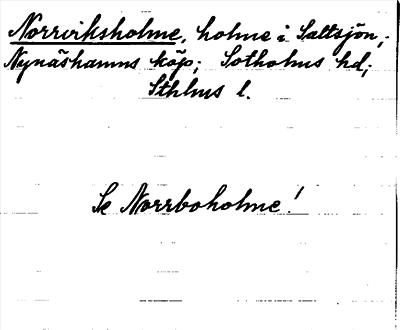 Norrviksholme, holme i Saltsjön,
Nynäshamns köp; Sotholms hd;
Sthlms l.
Se Norrboholme!